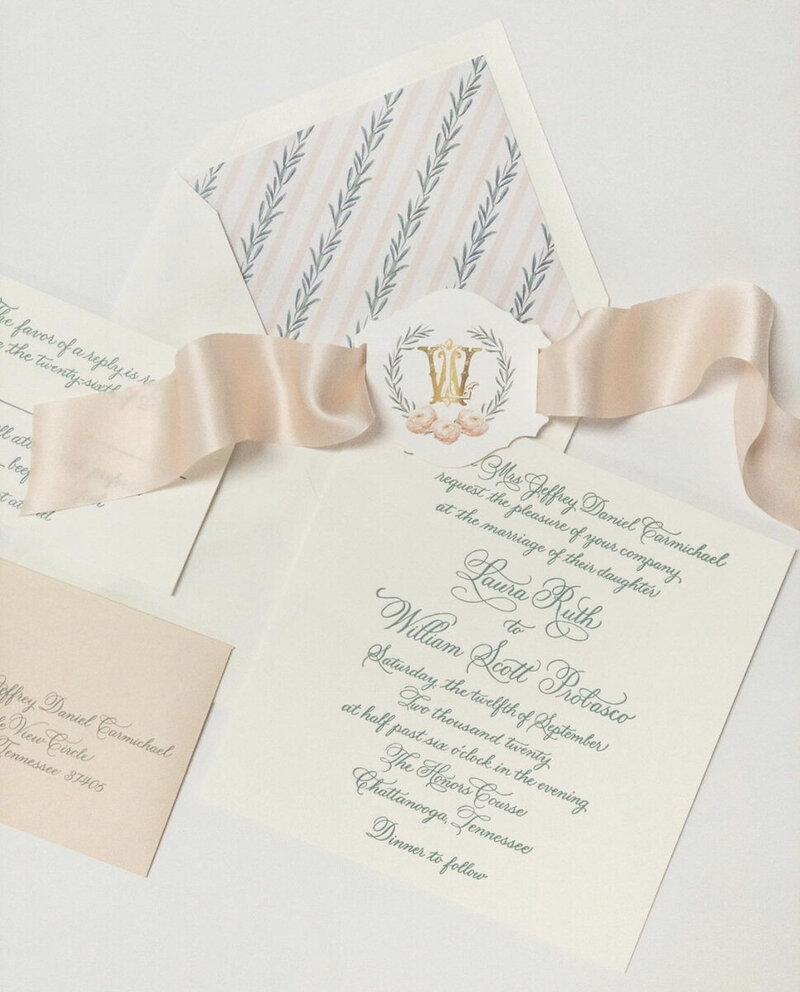 The favor of a reply is re
the twenty-sixth
W L
Mrs Jeffrey Daniel Carmichael
request the pleasure of your company
at the marriage of their daughter
Laura Ruth
to
William Scott Probasco
Saturday, the twelfth of September
Two thousand twenty
at half past six o'clock in the evening
The Honors Course
Chattanooga, Tennessee
Dinner to follow
Jeffrey Daniel Carmichael
View Circle
Tennessee 37405